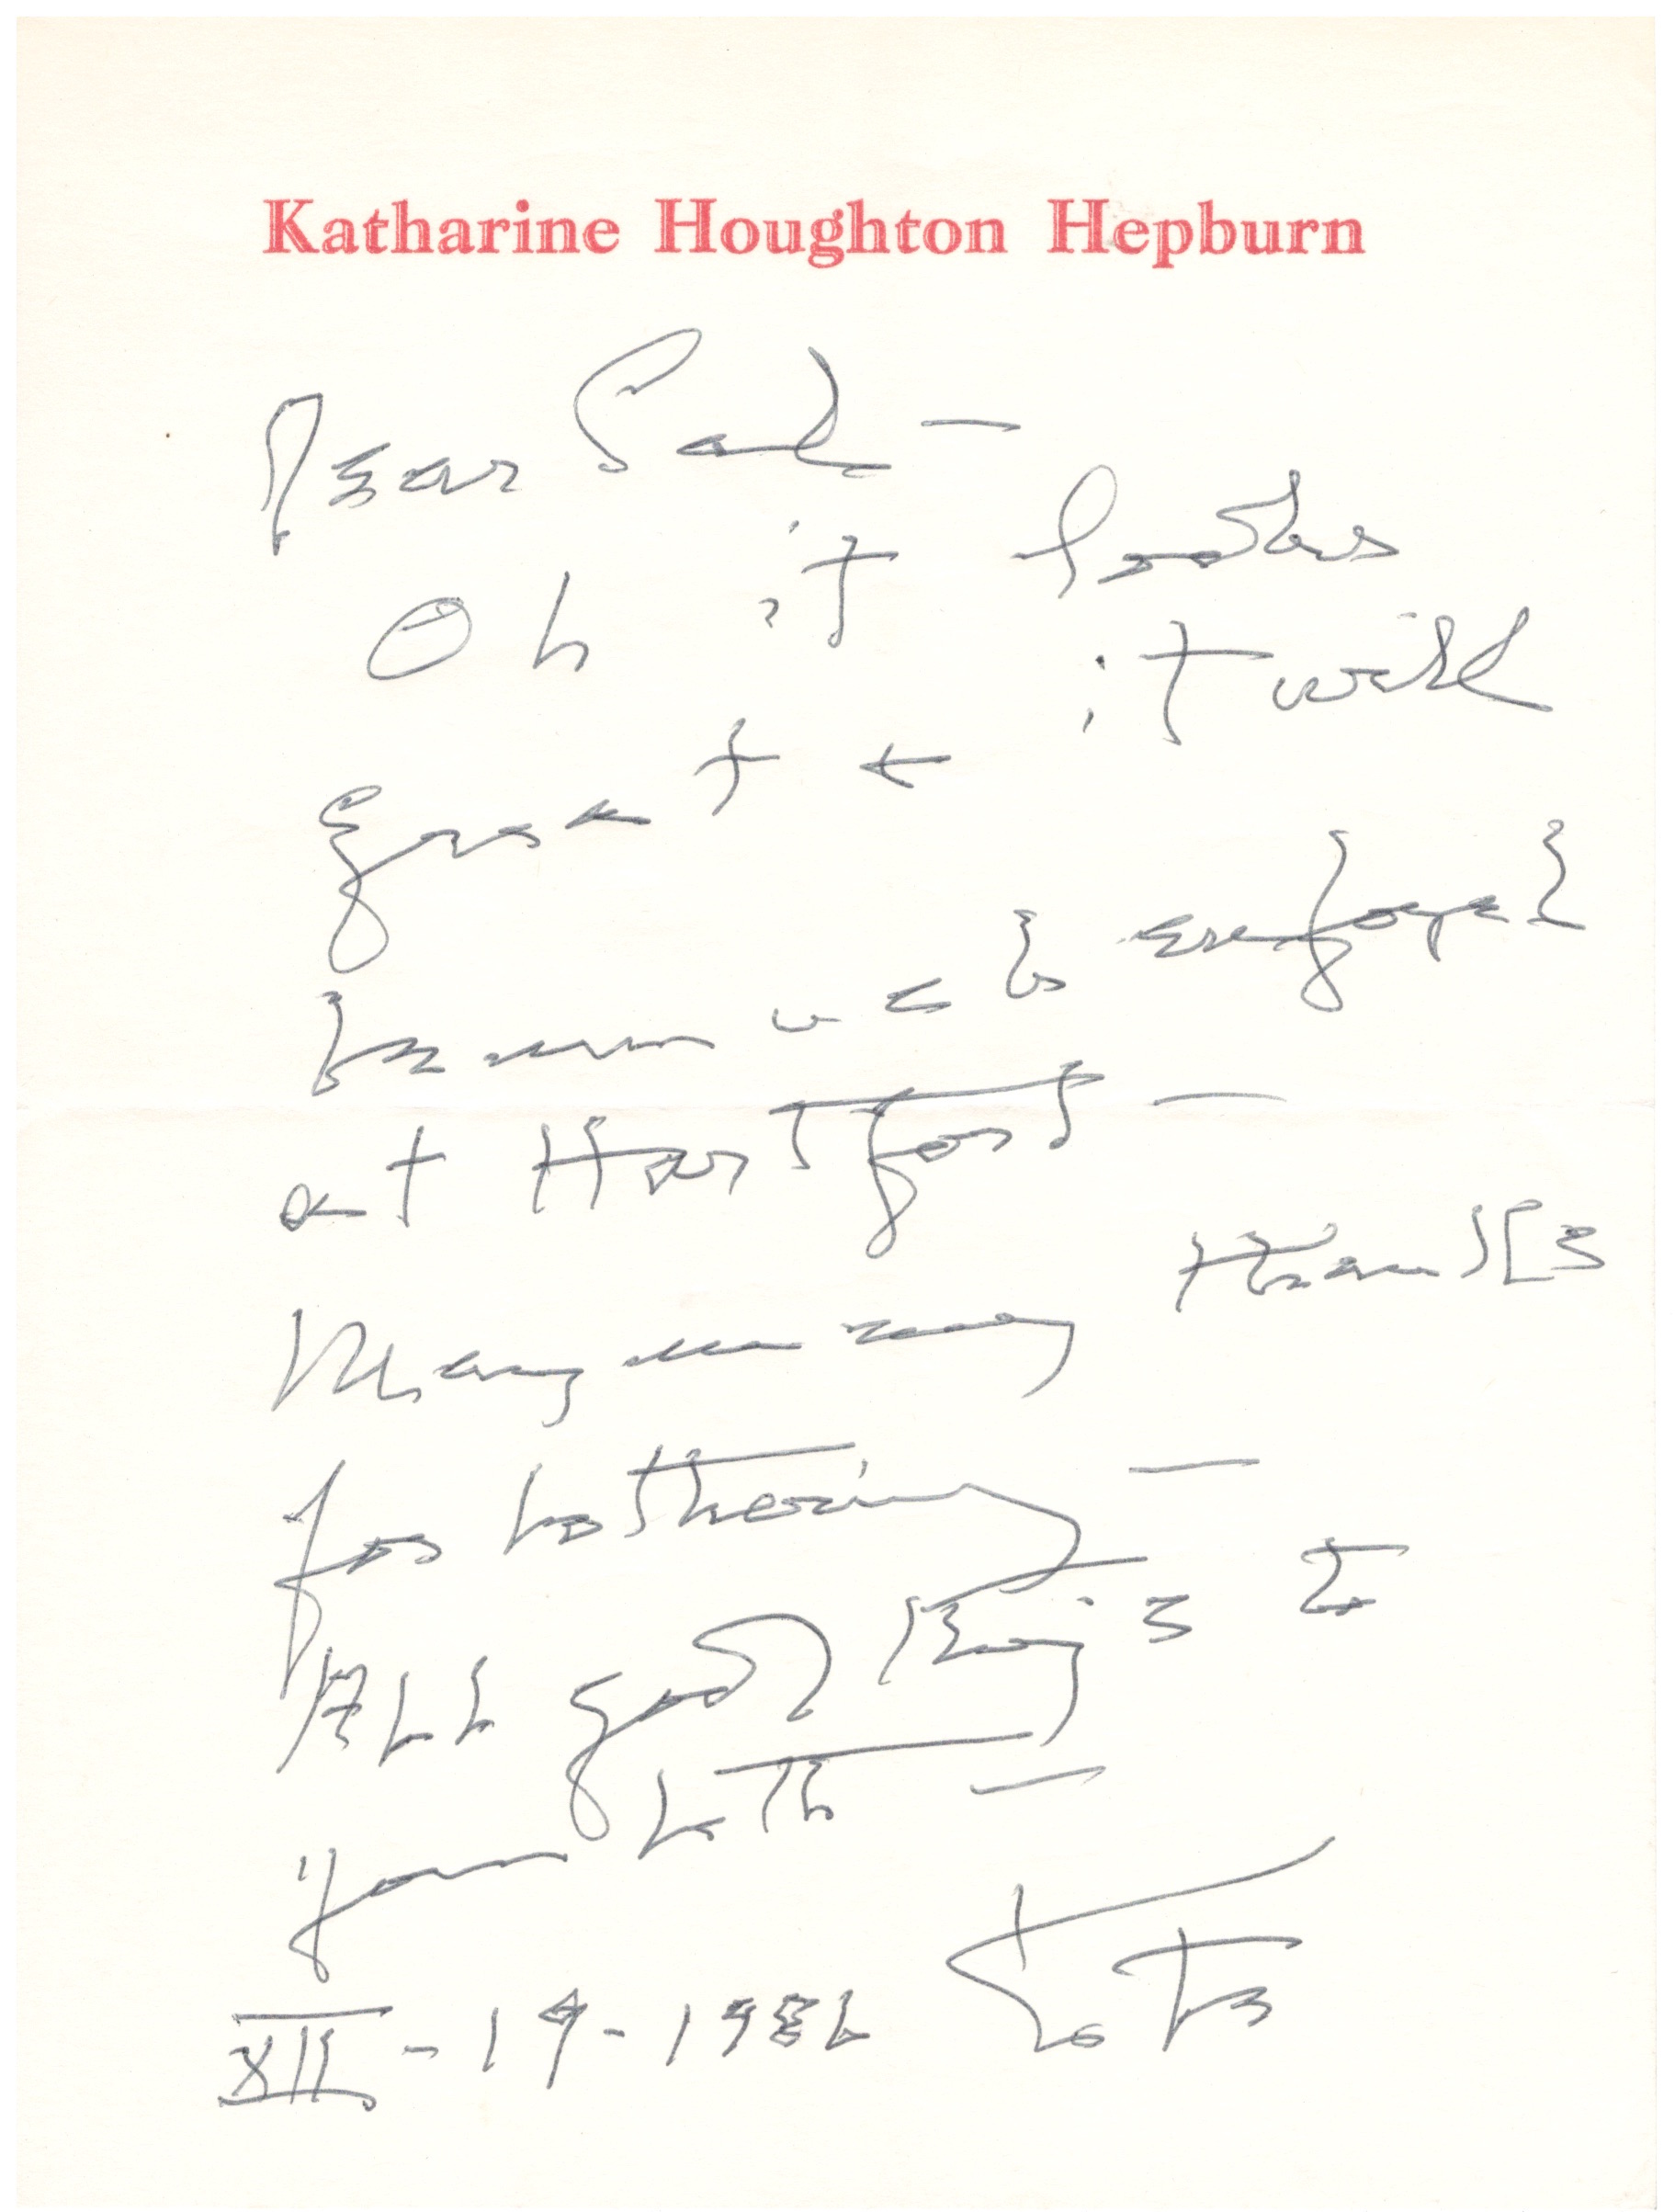 Katharine Houghton Hepburn
Dear Paul —
Oh it looks
great & it will
be employed
at Hartford —
Many many thanks
for bothering —
All good things to
you both —
XII-19-1982